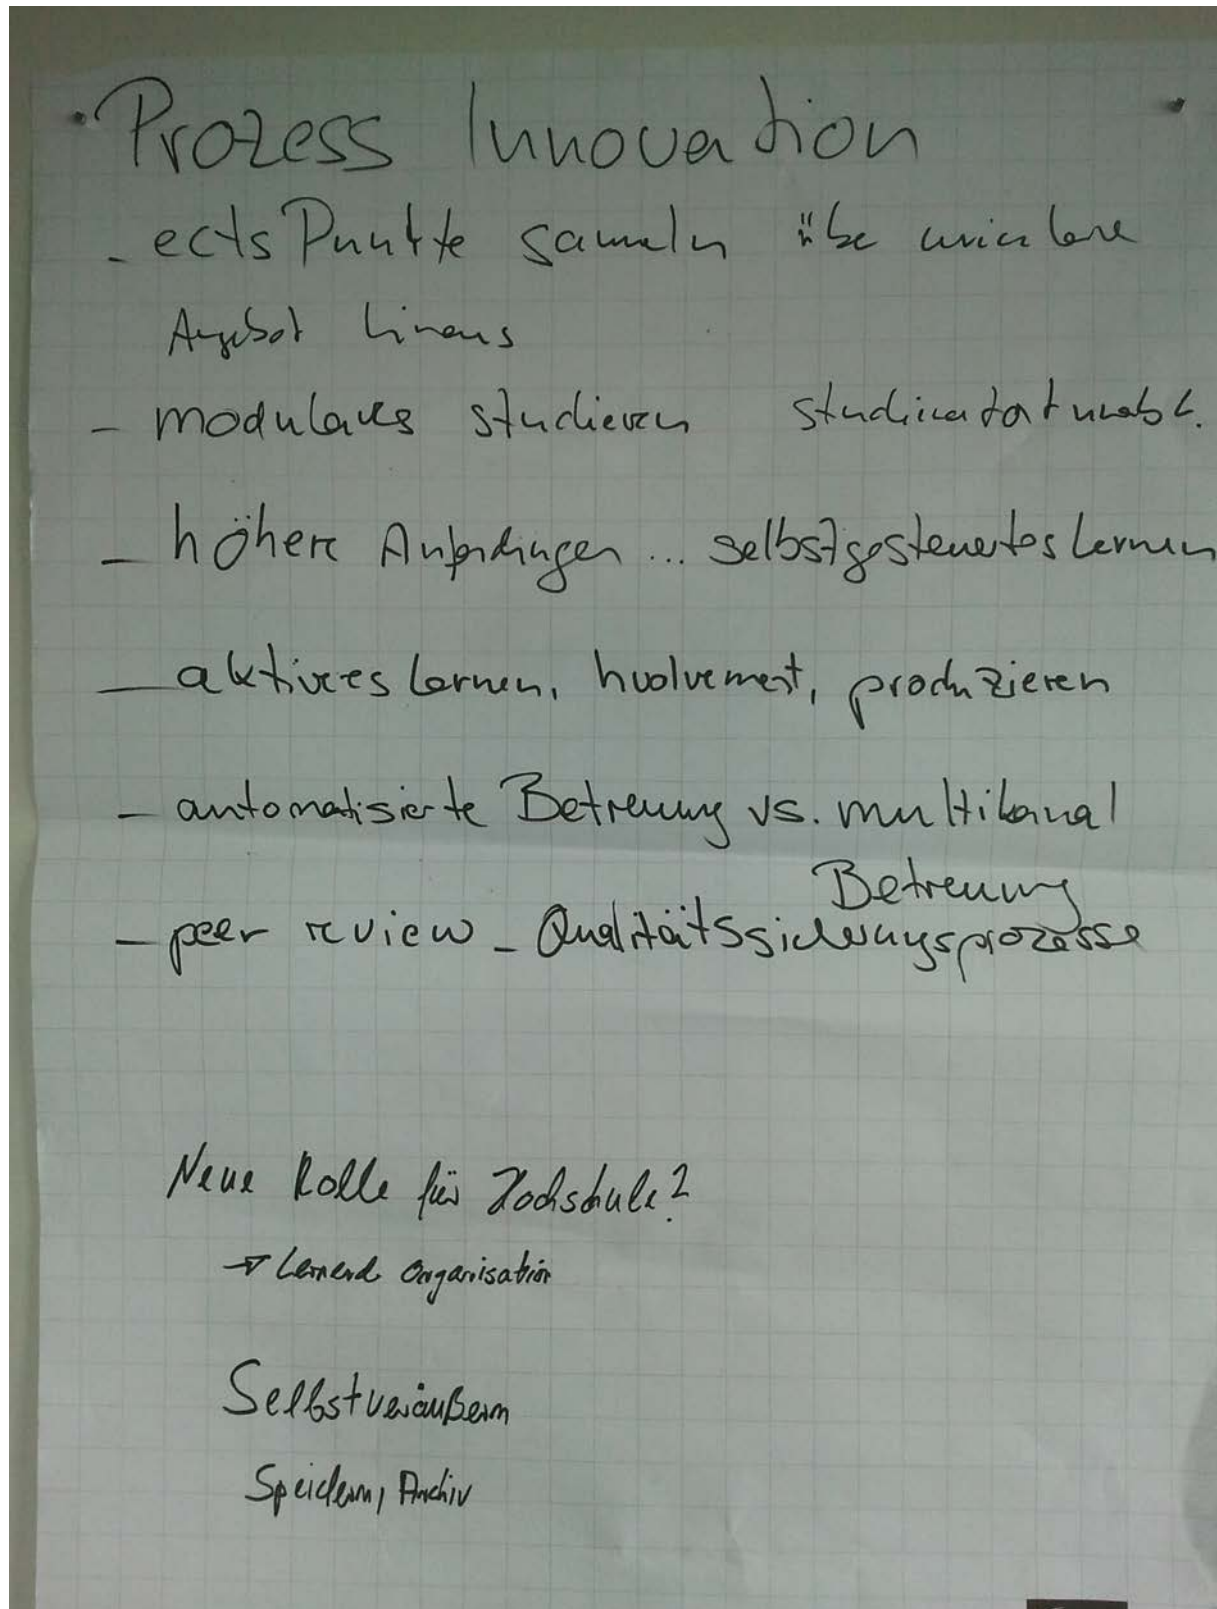 Prozess Innovation
- ects Punkte sameln übe
Angebot hinaus
- modulares studieren
- höhere Anforderungen ... selbstgesteuertes Lernen
- aktives lernen, Involvement, produzieren
- automatisierte Betreuung vs. multikanal
Betreuung
- peer review - Qualitätssicherungsprozesse
Neue Rolle für Hochschule?
→ Lernend Organisation
Selbstveräußern
Speichern, Archiv